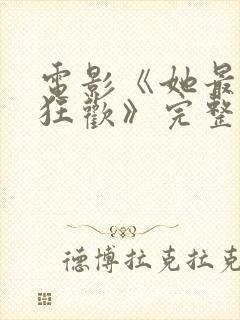 電影《她最
狂歡》完整
德博拉克拉克